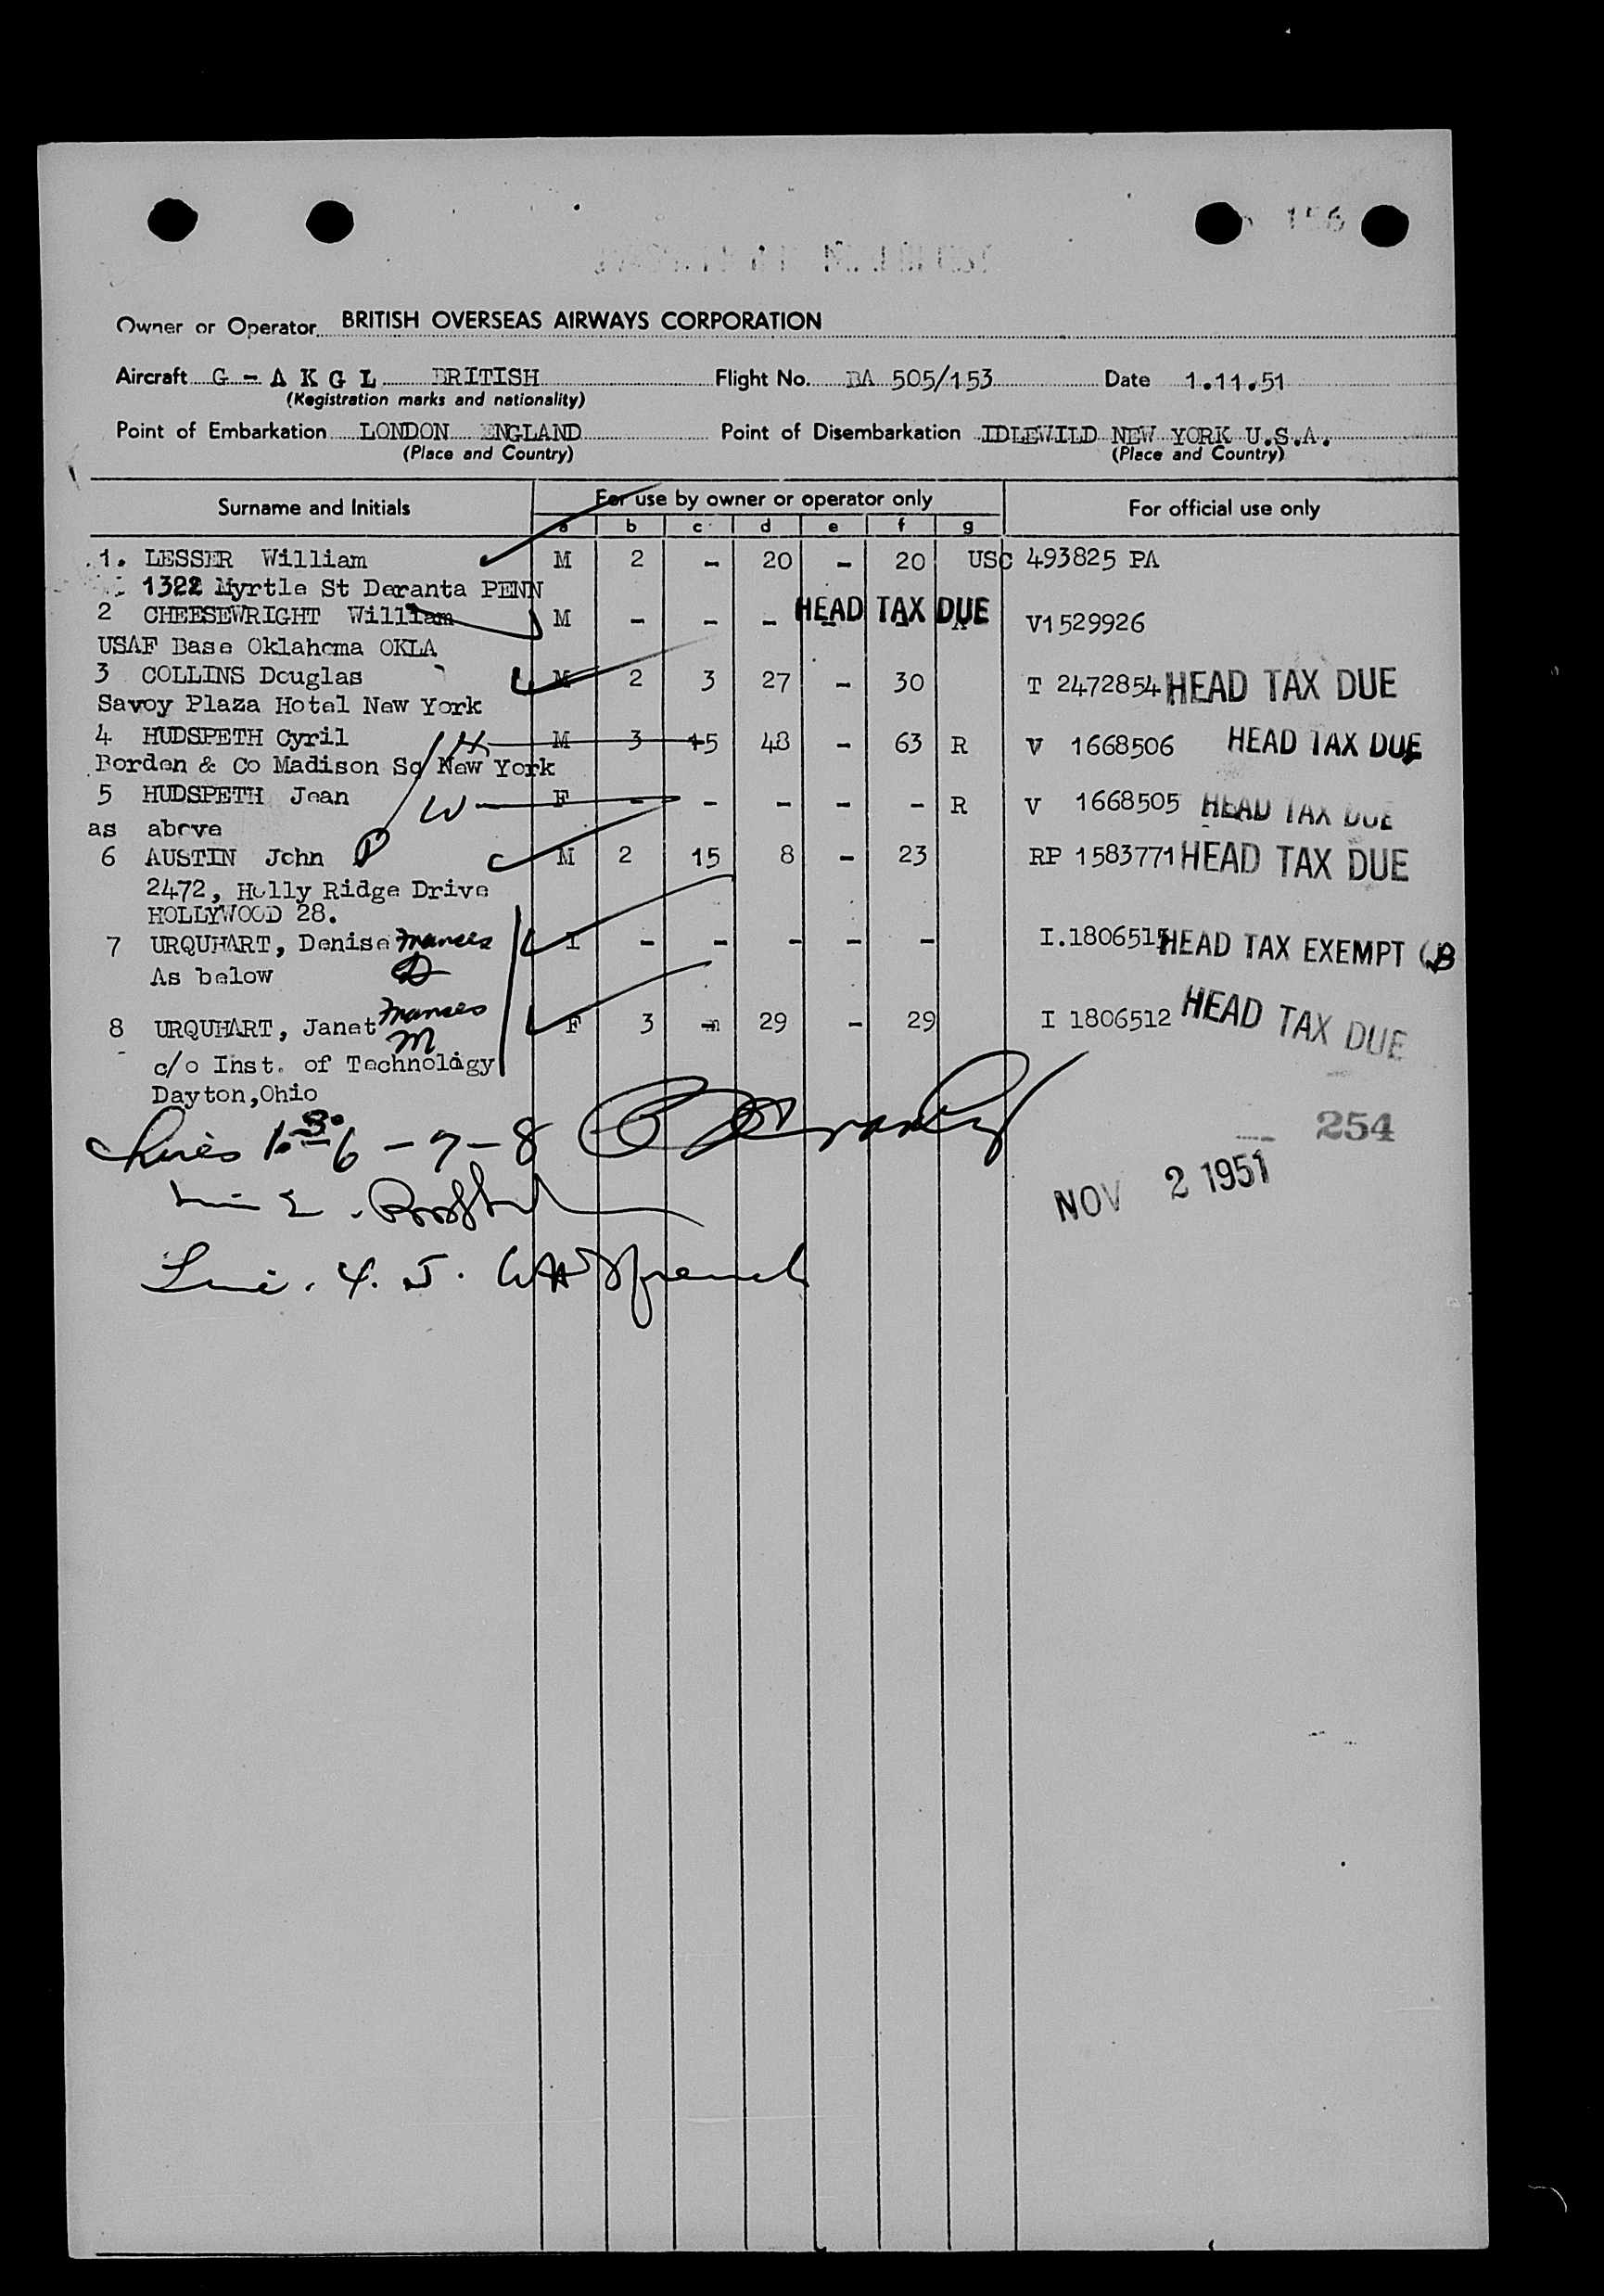 156
Owner or Operator BRITISH OVERSEAS AIRWAYS CORPORATION
Aircraft G - A K G L BRITISH Flight No. BA 505/153 Date 1.11.51
(Registration marks and nationality)
Point of Embarkation LONDON ENGLAND Point of Disembarkation IDLEWILD NEW YORK U.S.A.
(Place and Country) (Place and Country)
Surname and Initials For use by owner or operator only For official use only
a b c d e f g
1. LESSER William M 2 - 20 - 20 USC 493825 PA
1322 Myrtle St Deranta PENN
2 CHEESEWRIGHT William M - - - - - A V1529926 HEAD TAX DUE
USAF Base Oklahoma OKLA
3 COLLINS Douglas M 2 3 27 - 30 T 2472854 HEAD TAX DUE
Savoy Plaza Hotel New York
4 HUDSPETH Cyril H M 3 15 48 - 63 R V 1668506 HEAD TAX DUE
Borden & Co Madison Sq New York
5 HUDSPETH Jean W F - - - - - R V 1668505 HEAD TAX DUE
as above
6 AUSTIN John M 2 15 8 - 23 RP 1583771 HEAD TAX DUE
2472, Holly Ridge Drive
HOLLYWOOD 28.
7 URQUHART, Denise Frances I - - - - - I.1806515 HEAD TAX EXEMPT
As below D
8 URQUHART, Janet Frances F 3 - 29 - 29 I 1806512 HEAD TAX DUE
M
c/o Inst. of Technology
Dayton, Ohio
254
6 - 7 - 8
NOV 2 1951
4. 5.